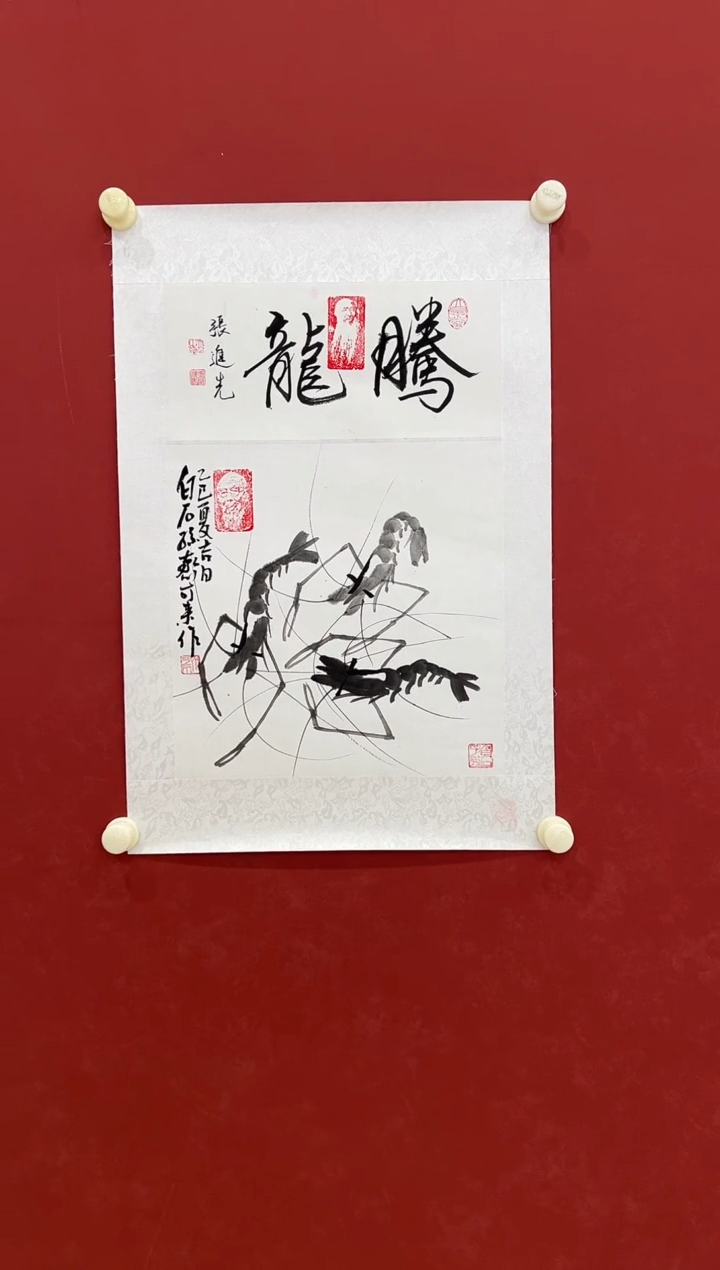 騰龍
張進先
乙巳夏吉日
白石孫齊可来作